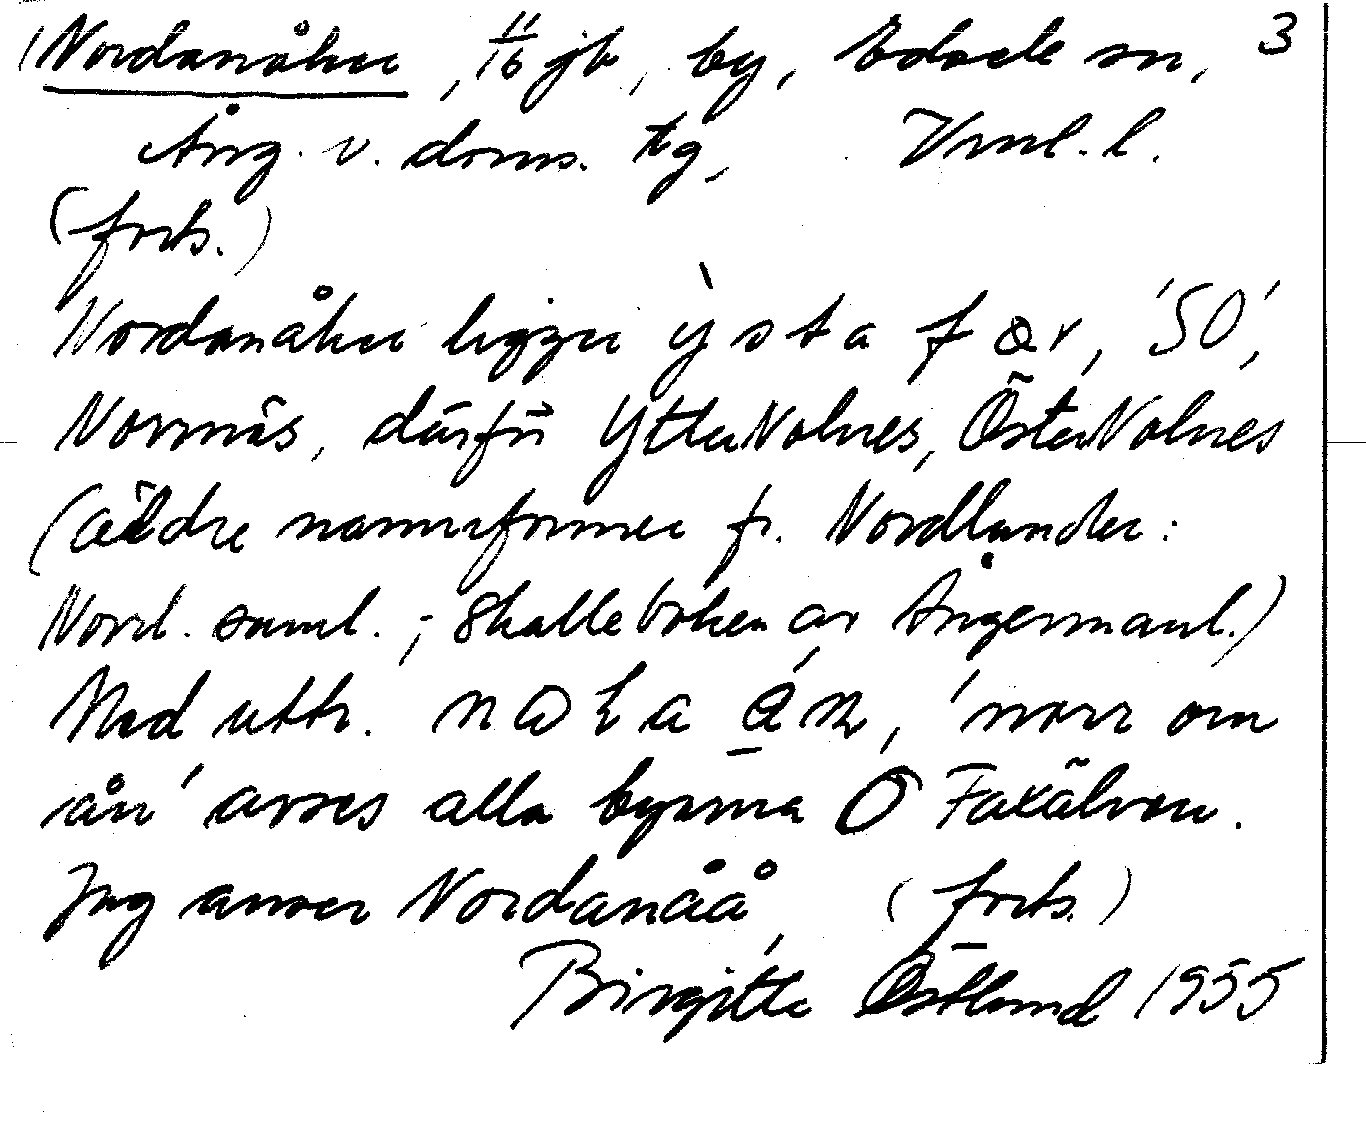 Nordanåker, 11/16 jb, by, Edsele sn, 3
Ång. v. doms. tg, Vnl. l.
(forts.)
Nordanåker ligger ỳsta fær, 'SO',
Nornäs, därför YtterNolnes, ÖsterNolnes
(äldre namnformer fr. Nordlander:
Norrl. saml.; Skatteboken av Ångermanl.)
Med uttr. án, 'norr om
ån' avses alla byarna O Faxälven.
Jag anser Nordanåå, (forts.)
Birgitta Östlund 1955